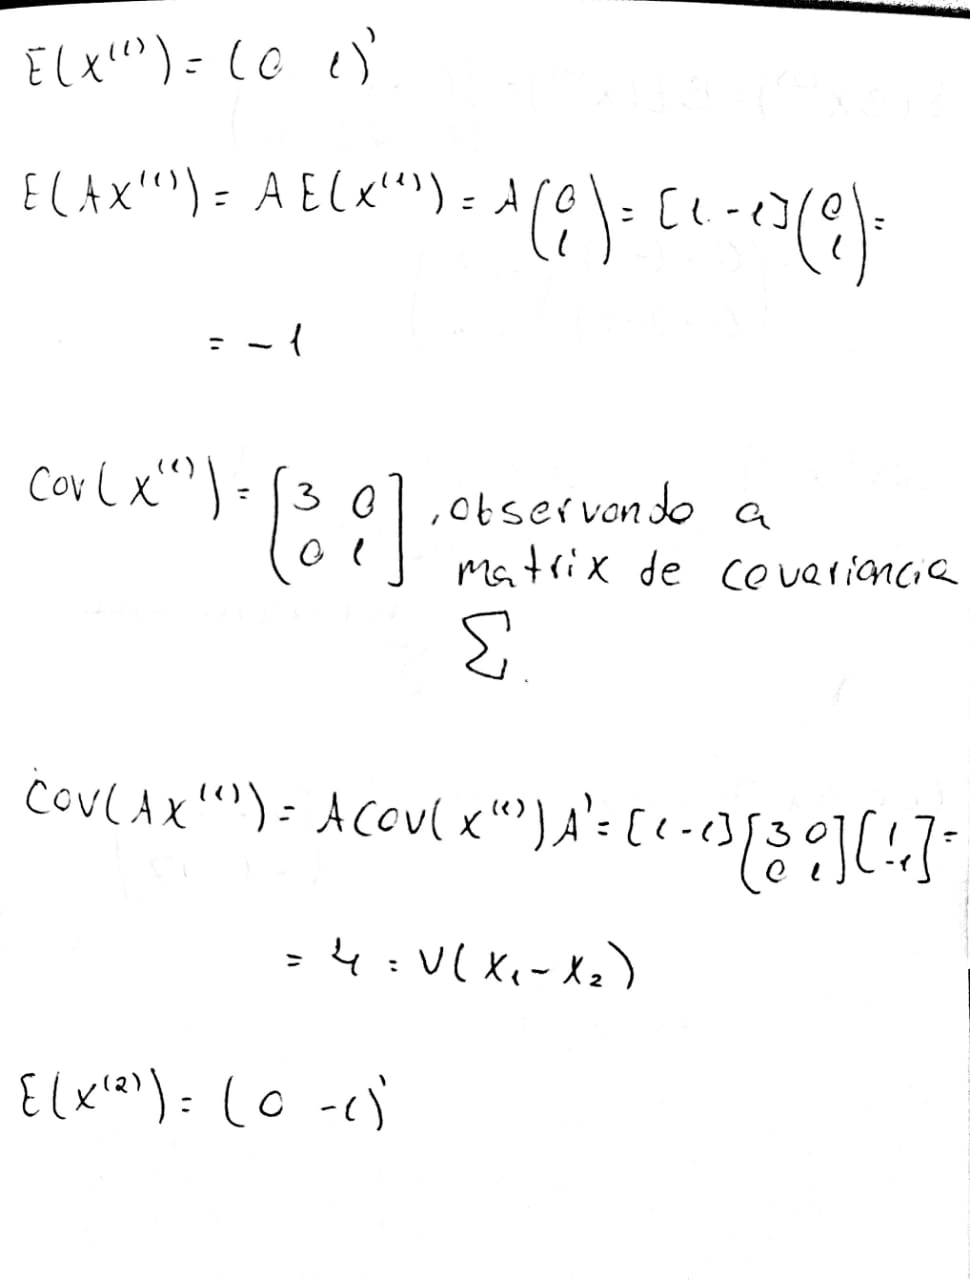 E(X⁽¹⁾) = (0 1)'
E(AX⁽¹⁾) = A E(X⁽¹⁾) = A (0 1) = [1 -1] (0 1) =
= -1
Cov(X⁽¹⁾) = [3 0 0 1], observando a
matrix de covariancia
Σ.
Cov(AX⁽¹⁾) = A Cov(X⁽¹⁾) A' = [1 -1] [3 0 0 1] [1 -1] =
= 4 = V(X₁ - X₂)
E(X⁽²⁾) = (0 -1)'